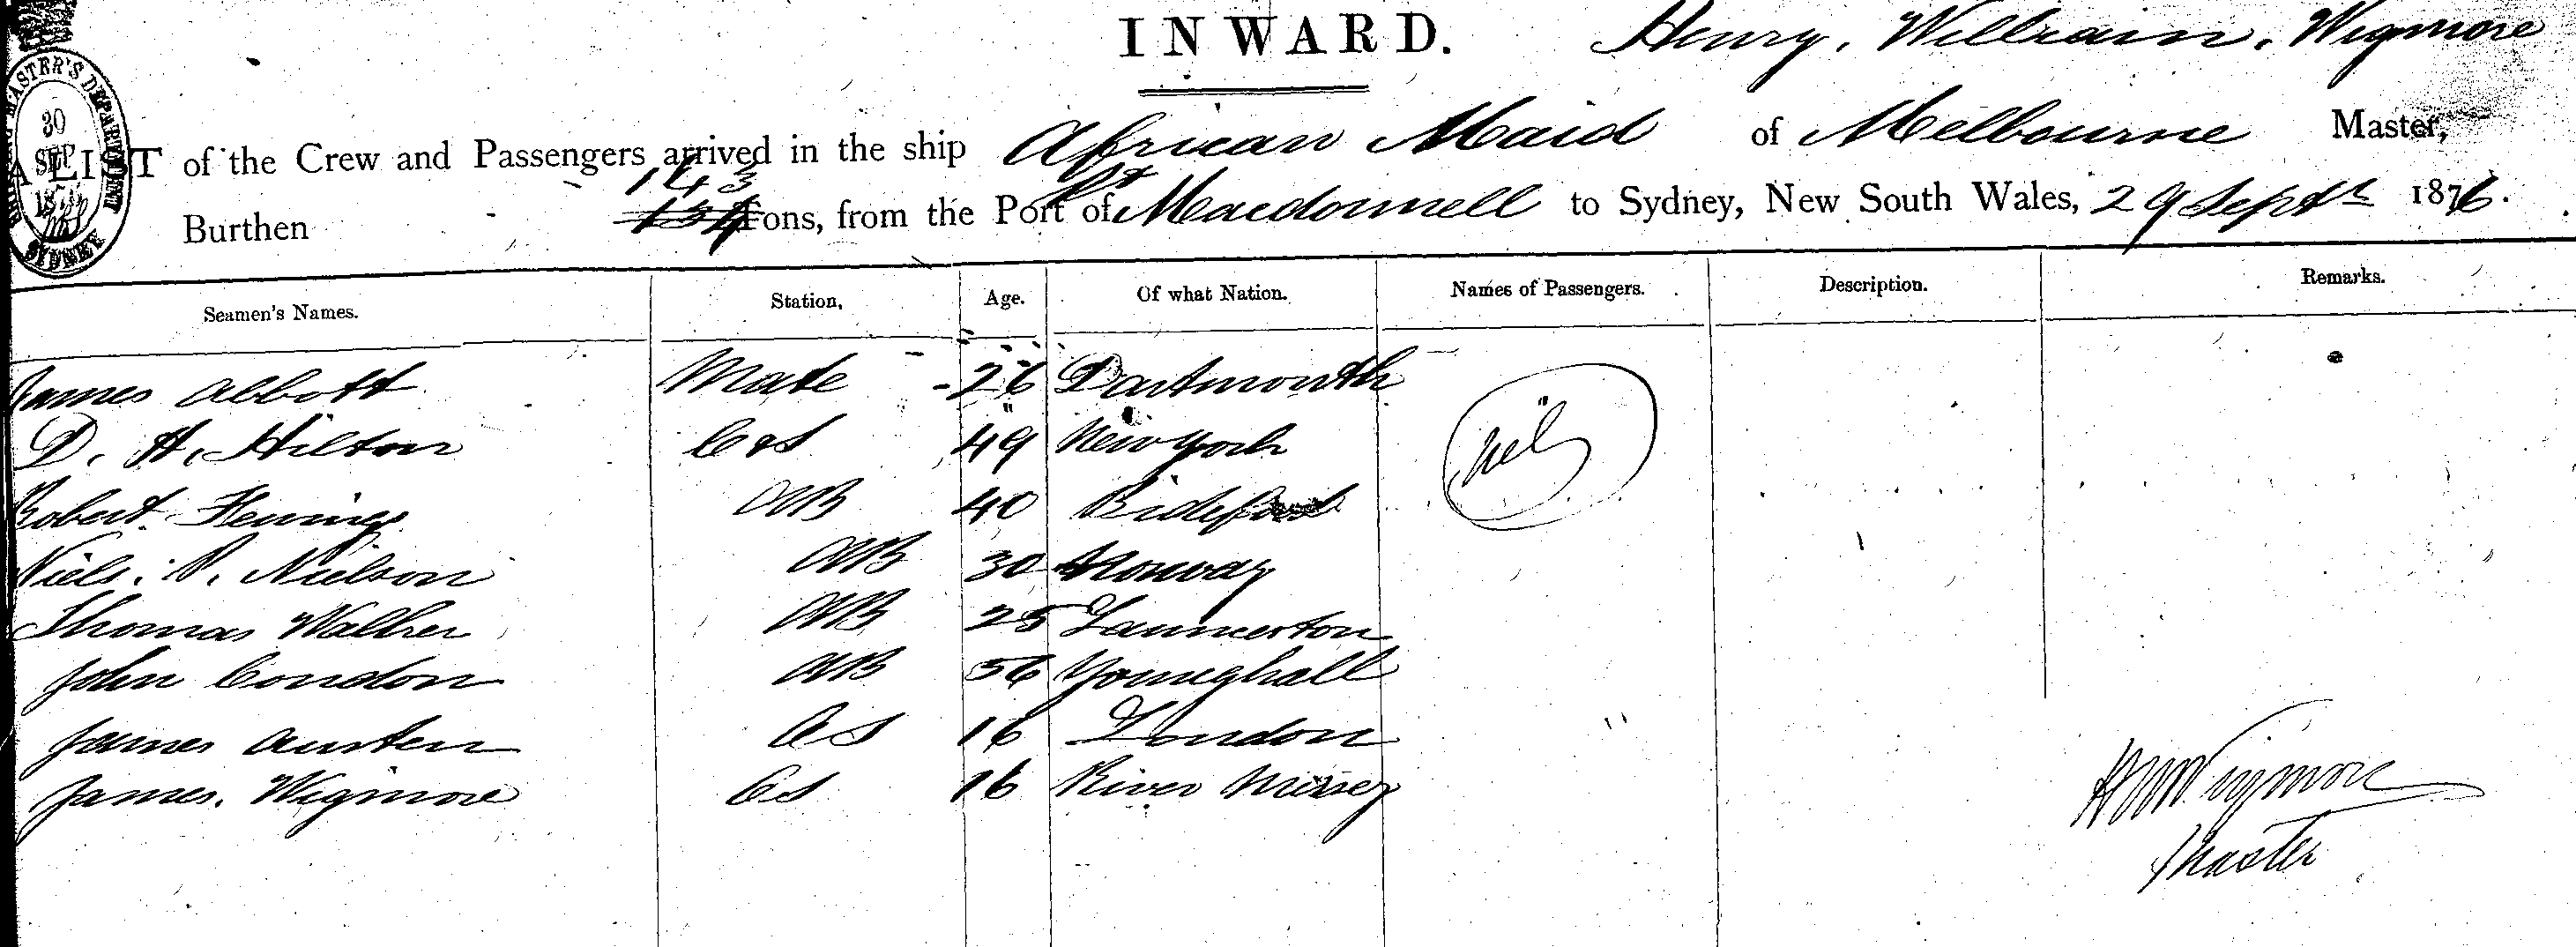 INWARD. Henry. William. Wigmore
A LIST of the Crew and Passengers arrived in the ship African Maid of Melbourne Master,
143
Burthen Tons, from the Port of Pt Macdonnell to Sydney, New South Wales, 29 Septr 1876.
SHIPPING MASTER'S DEPARTMENT
30
SEP
SYDNEY
Seamen's Names. Station, Age. Of what Nation. Names of Passengers. Description. Remarks.
James Abbott Mate 26 Dartmouth
D. H. Hilton C&S 49 New York nil
Robert. AB 40 Bideford
Niels. P. Nielson AB 30 Norway
Thomas Walker AB 25
John Condon AB 56 Youneghall
James Austen OS 16 London
James. Wigmore 16 River
HW Wigmore
Master